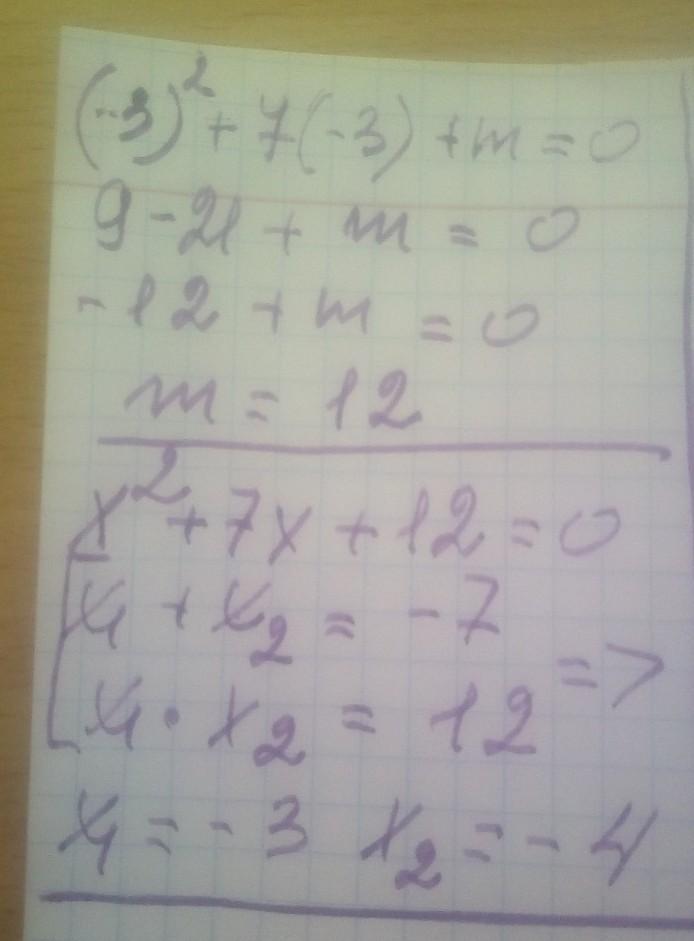 (-3)² + 7(-3) + m = 0
9 - 21 + m = 0
-12 + m = 0
m = 12
x² + 7x + 12 = 0
x₁ + x₂ = -7
x₁ · x₂ = 12 =>
x₁ = -3 x₂ = -4